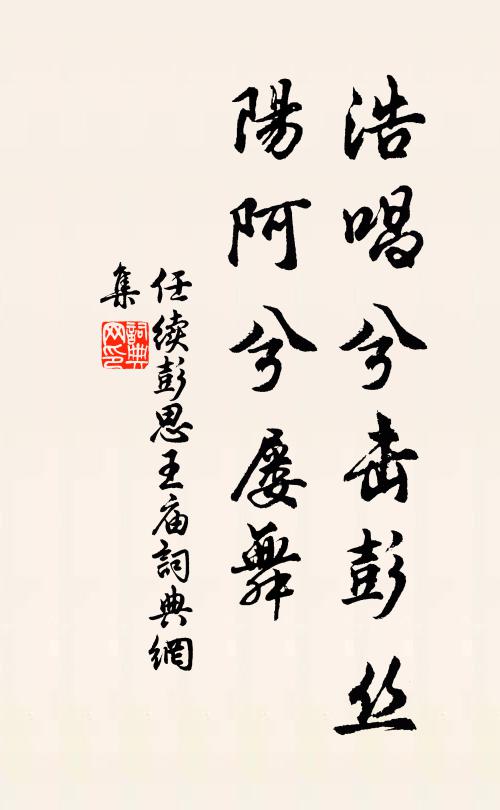 浩唱兮击彭丝
陽阿兮屡舞
任续彭思王庙詞典網
集
詞典
网印